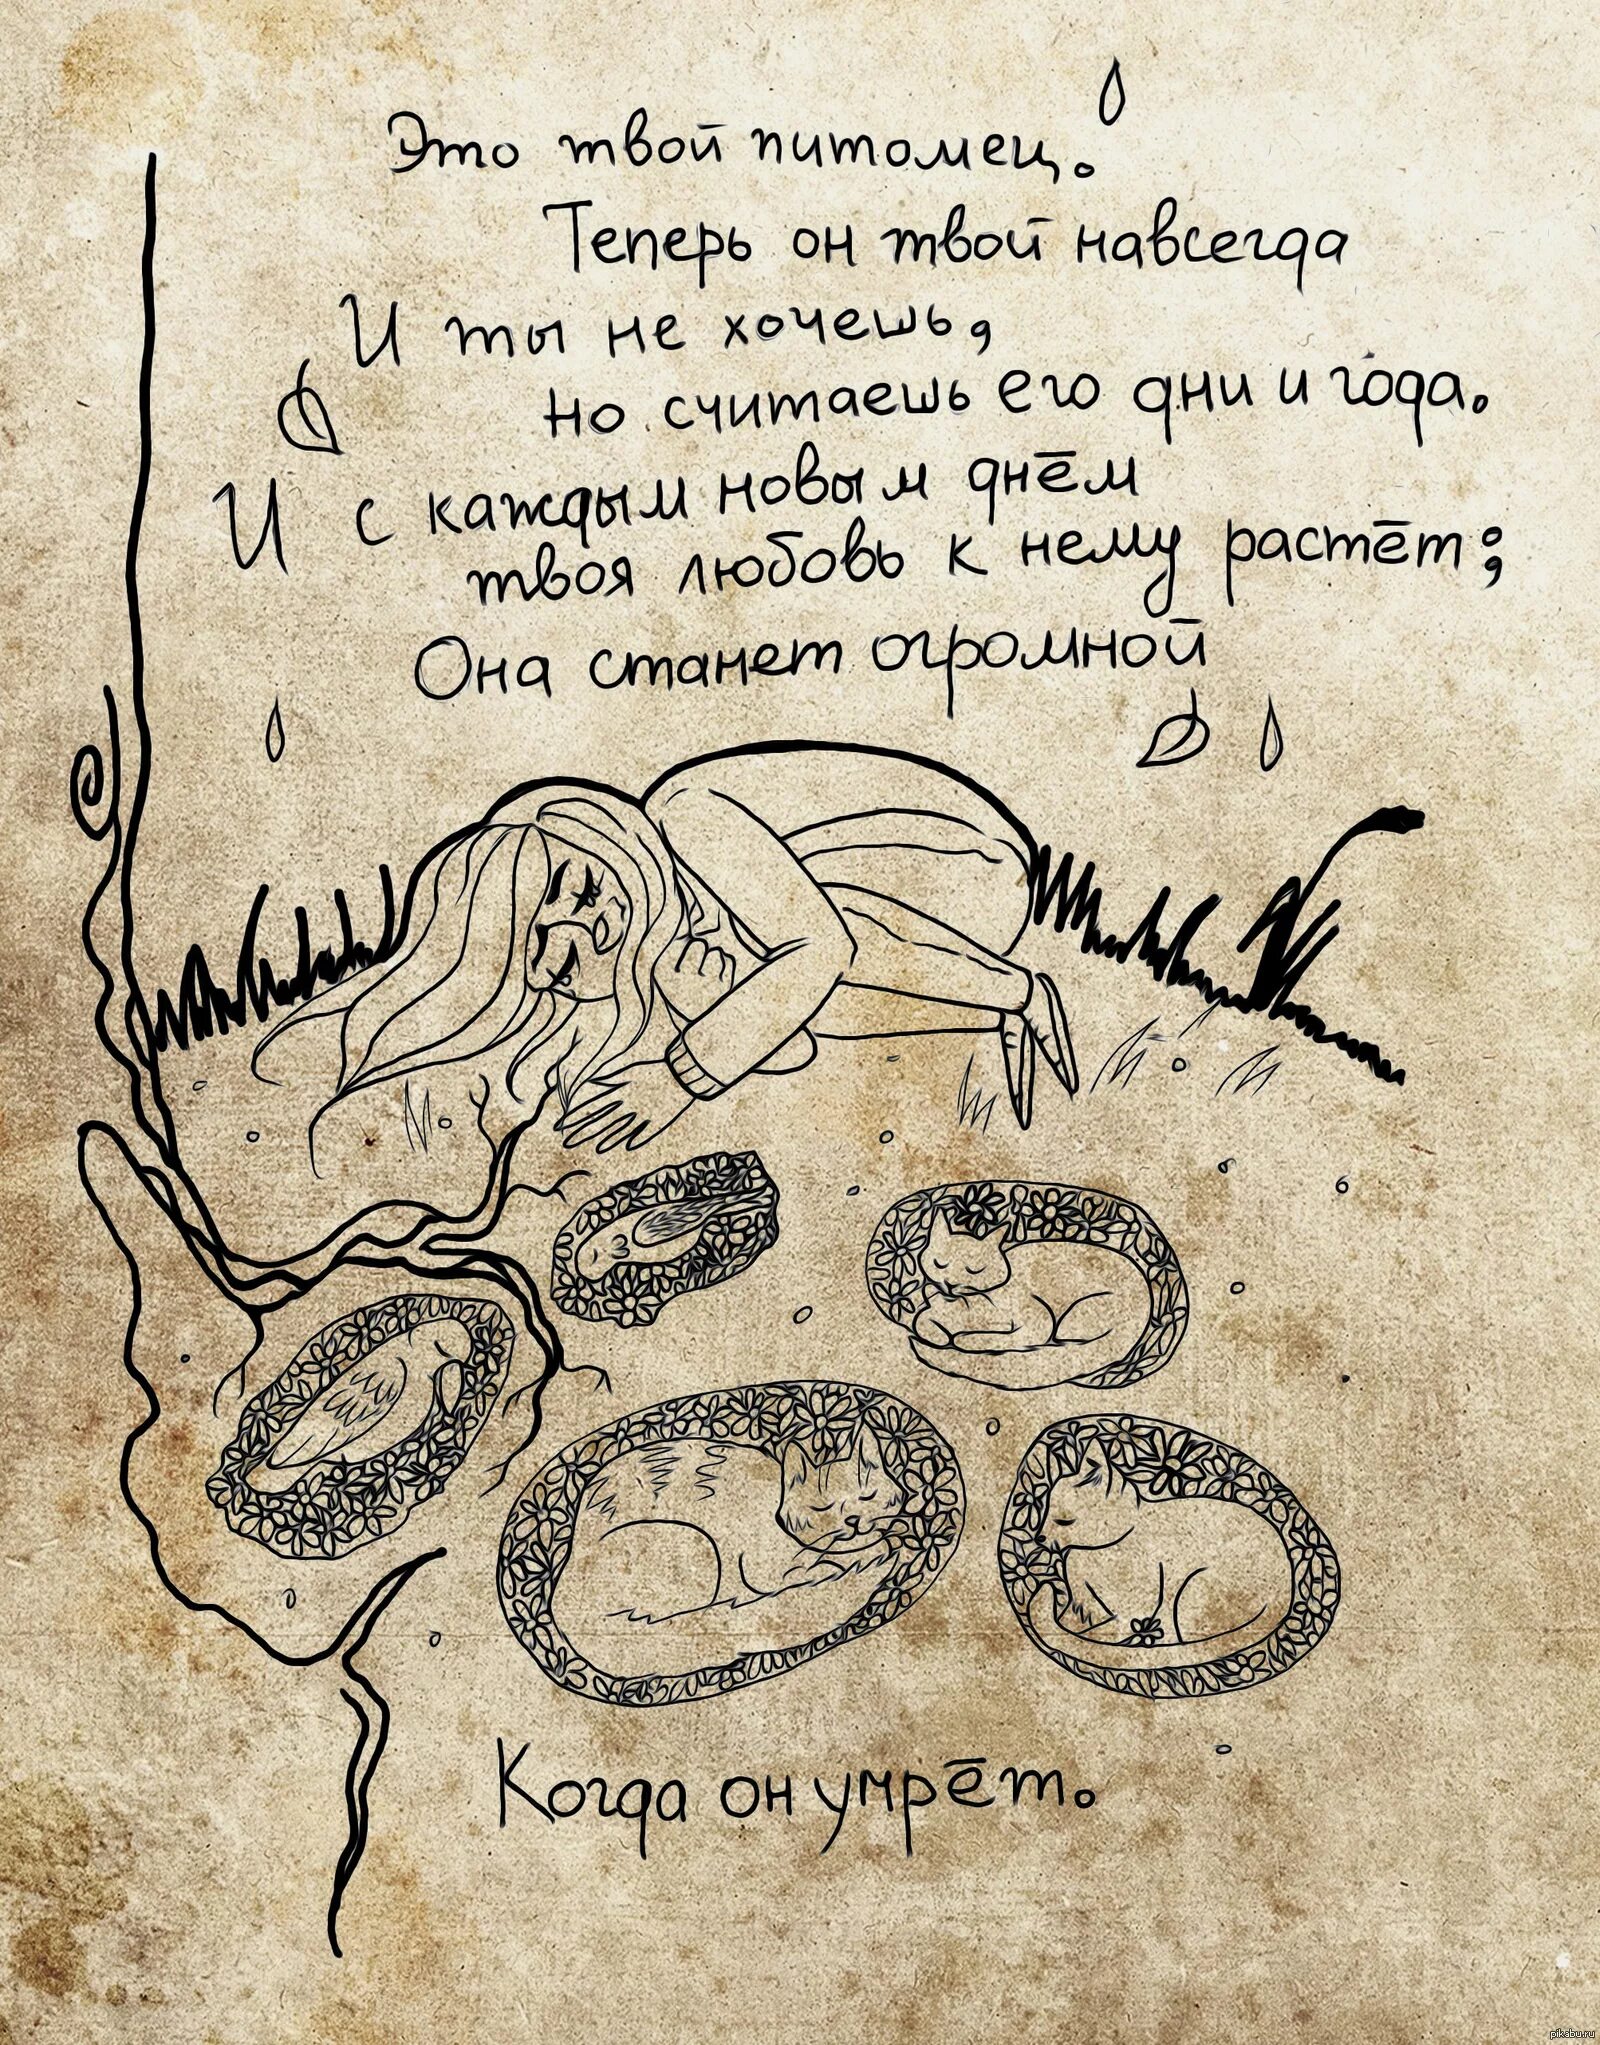 Это твой питомец.
Теперь он твой навсегда
И ты не хочешь,
но считаешь его дни и года.
И с каждым новым днём
твоя любовь к нему растёт;
Она станет огромной
Когда он умрёт.
pikabu.ru